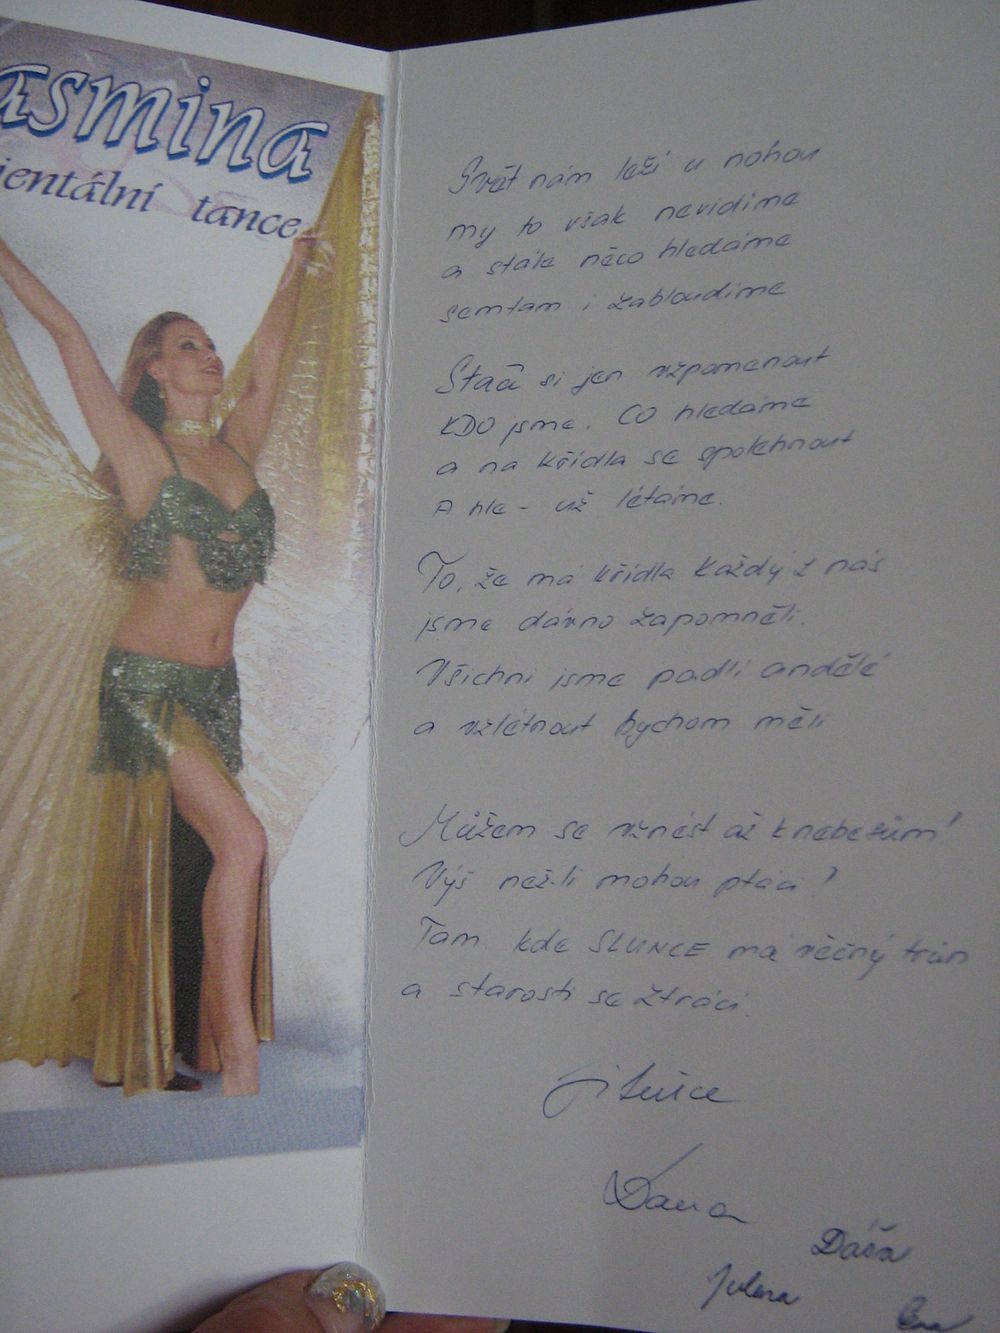 asmina
ientální tance
Svět nám leží u nohou
my to však nevidíme
a stále něco hledáme
semtam i zabloudíme
Stačí si jen vzpomenout
KDO jsme, CO hledáme
a na křídla se spolehnout
A hle - už létáme.
To, že má křídla každý z nás
jsme dávno zapomněli.
Všichni jsme padlí andělé
a vzlétnout bychom měli
Můžem se vznést až k nebesům!
Výš než-li mohou ptáci!
Tam kde SLUNCE má věčný trůn
a starosti se ztrácí.
Jitušce
Dana
Dáša
Jolana
Eva